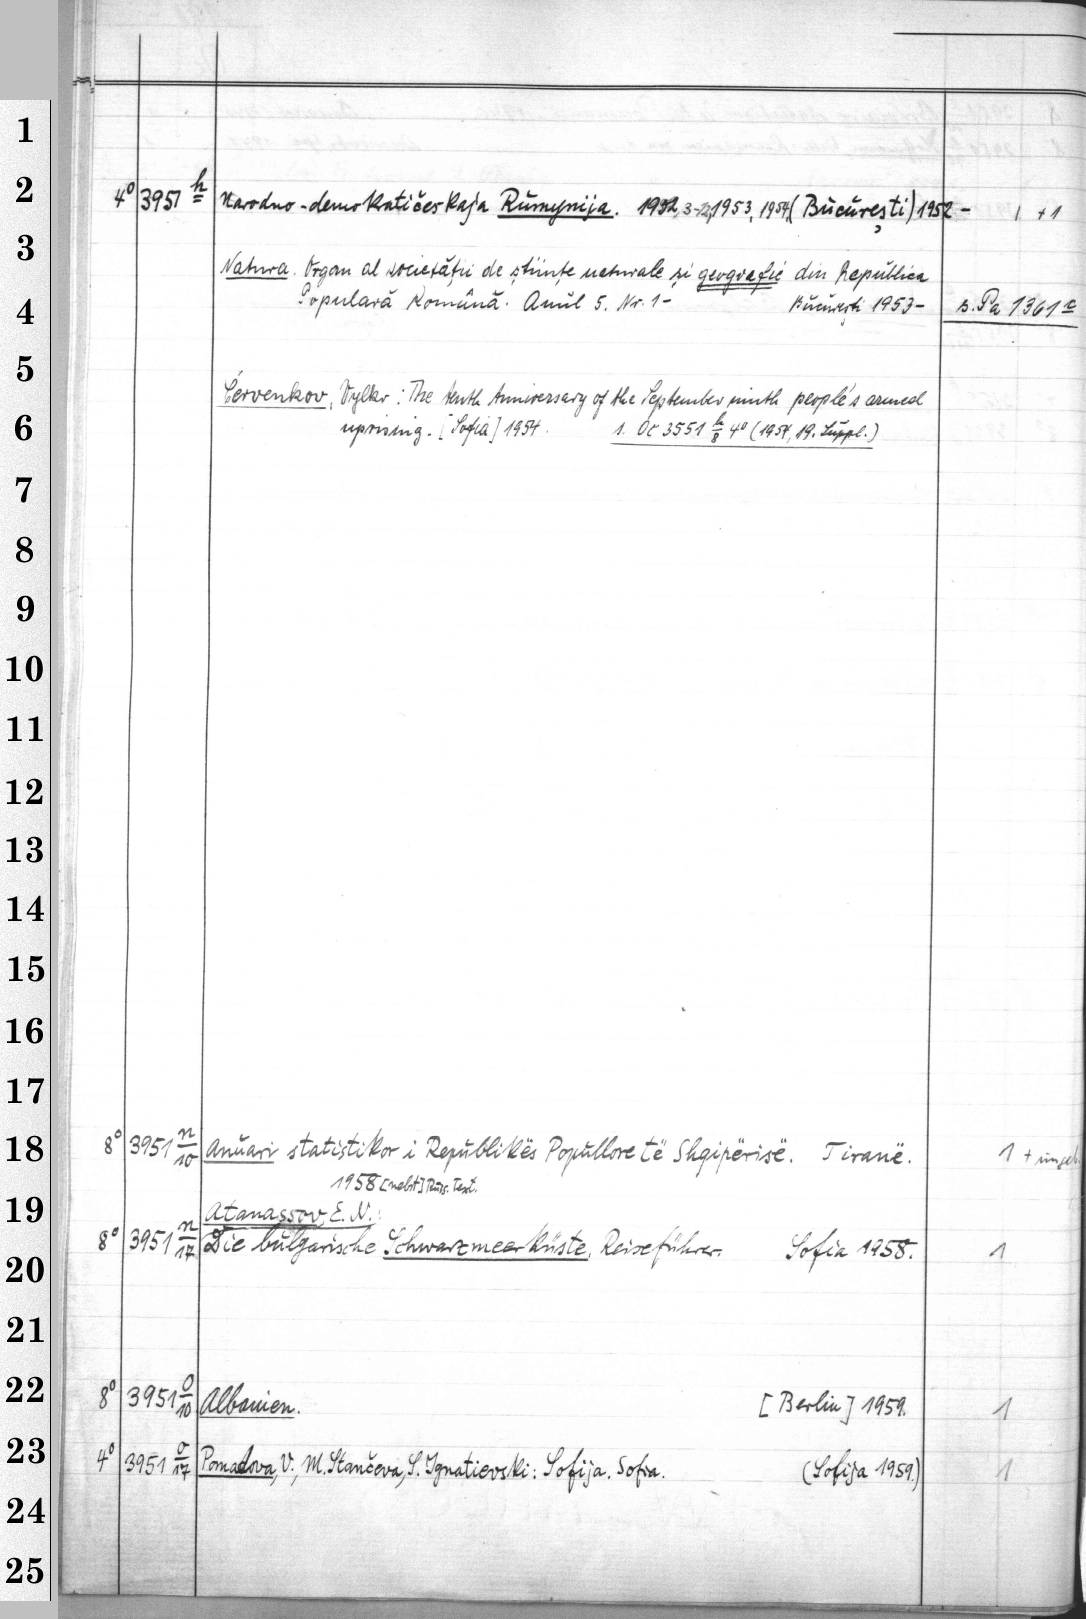 1
2
4° 3951 h Narodno-demokratičeskaja Rumynija. 1952, 3-12, 1953, 1954 (Bucureşti) 1952- 1 + 1
3
Natura. Organ al societăţii de ştiinţe naturale şi geografie din Republica
4
Populară Română. Anul 5. Nr. 1- Bucureşti 1953- s. Pa 1361 a
5
Červenkov, Vylko: The tenth Anniversary of the September ninth people's armed
6
uprising. [Sofia] 1954. s. Oc 3551 h/8 4° (1954, 19. Suppl.)
7
8
9
10
11
12
13
14
15
16
17
18
8° 3951 n/10 Anuari statistikor i Republikës Popullore të Shqipërisë. Tiranë. 1 +
1958 [nebst] Russ. Text.
19
Atanassov, E. N.:
8° 3951 n/17 Die bulgarische Schwarzmeerküste, Reiseführer. Sofia 1958. 1
20
21
22
8° 3951 o/10 Albanien. [Berlin] 1959. 1
23
4° 3951 o/17 V., M. Stančeva, S. Ignatievski: Sofija. Sofia. (Sofija 1959.) 1
24
25